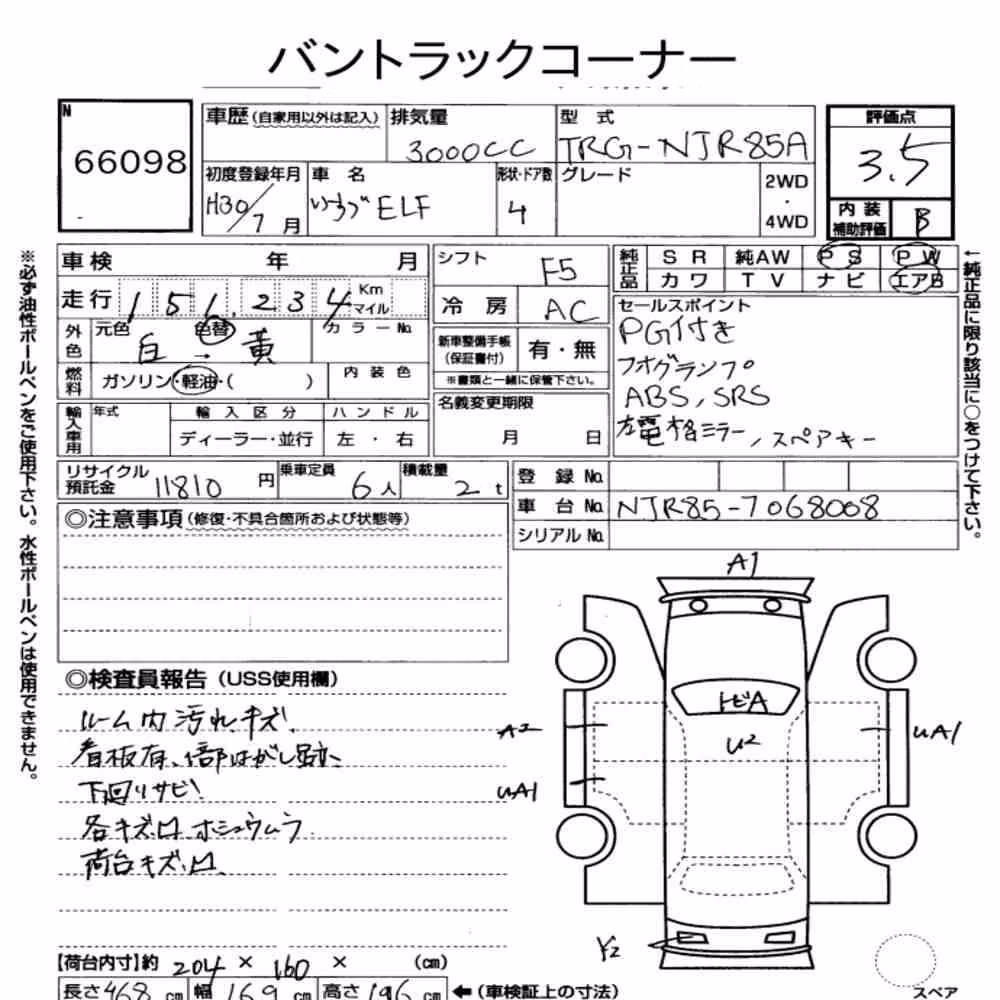 バントラックコーナー
N
66098
車歴 (自家用以外は記入)
排気量
3000CC
型式
TRG-NJR85A
評価点
3.5
初度登録年月
H30/7月
車名
いすゞELF
形状・ドア数
4
グレード
2WD
・
4WD
内装
補助評価
B
車検 年 月
走行 151,234 Km
マイル
外色
元色
白 → 黄
色替
カラーNo.
燃料
ガソリン・軽油・( )
内装色
輸入車用
年式
輸入区分
ディーラー・並行
ハンドル
左・右
シフト
F5
冷房
AC
新車整備手帳
(保証書付)
有・無
※書類と一緒に保管下さい。
名義変更期限
月 日
純正品
SR 純AW PS PW
カワ TV ナビ エアB
セールスポイント
PG付き
フォグランプ
ABS, SRS
左電格ミラー, スペアキー
リサイクル
預託金
11810円
乗車定員
6人
積載量
2t
登録No.
車台No.
NJR85-7068008
シリアルNo.
◎注意事項(修復・不具合箇所および状態等)
◎検査員報告(USS使用欄)
ルーム内汚れ.キズ.
看板有、1部はがし跡
下回りサビ
各キズ凹 ホシュウムラ
荷台キズ.凹.
【荷台内寸】約 204 × 160 × (cm)
長さ 468 cm 幅 169 cm 高さ 196 cm
←(車検証上の寸法)
A1
トビA
U2
A2
UA1
UA1
Y2
スペア
※必ず油性ボールペンをご使用下さい。水性ボールペンは使用できません。
←純正品に限り該当に○をつけて下さい。